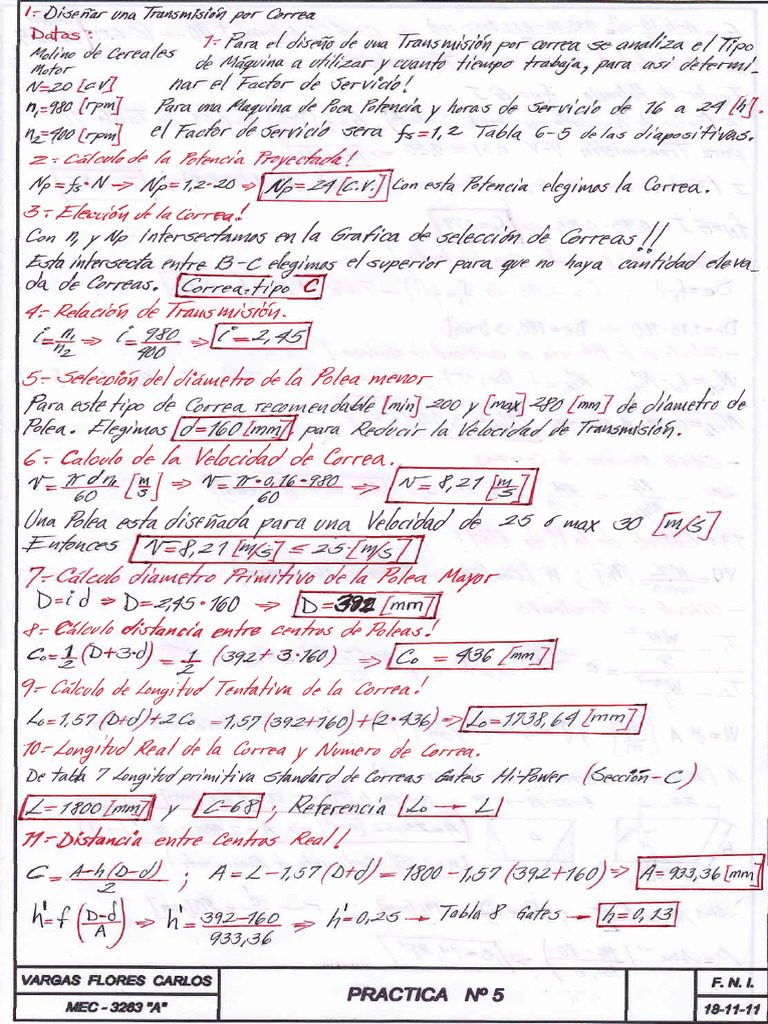 1.- Diseñar una Transmisión por Correa
Datos:
Molino de Cereales
Motor
N=20 [c.v]
n₁=980 [rpm]
n₂=400 [rpm]
1.- Para el diseño de una Transmisión por correa se analiza el Tipo
de Máquina a utilizar y cuanto tiempo trabaja, para así determi-
nar el Factor de Servicio!
Para una Maquina de Poca Potencia y horas de servicio de 16 a 24 [h].
el Factor de servicio sera fs=1,2 Tabla 6-5 de las diapositivas.
2.- Cálculo de la Potencia Proyectada!
Np=fs·N ⇒ Np=1,2·20 ⇒ Np=24 [c.v.] Con esta Potencia elegimos la Correa.
3.- Elección de la Correa!
Con n₁ y Np Intersectamos en la Grafica de selección de Correas!!
Esta intersecta entre B-C elegimos el superior para que no haya cantidad eleva-
da de Correas. Correa.tipo C
4.- Relación de Transmisión.
i=n₁/n₂ ⇒ i=980/400 ⇒ i=2,45
5.- Selección del diámetro de la Polea menor
Para este tipo de Correa recomendable [min] 200 y [max] 280 [mm] de diametro de
Polea. Elegimos d=160 [mm] para Reducir la Velocidad de Transmisión.
6.- Calculo de la Velocidad de Correa.
V=π d n₁/60 [m/s] ⇒ V=π·0,16·980/60 ⇒ V=8,21 [m/s]
Una Polea esta diseñada para una Velocidad de 25 o max 30 [m/s]
Entonces V=8,21 [m/s] ≤ 25·[m/s]
7.- Cálculo diametro Primitivo de la Polea Mayor
D=i d ⇒ D=2,45·160 ⇒ D=392 [mm]
8.- Cálculo distancia entre centros de Poleas!
Co=1/2 (D+3·d) = 1/2 (392+3·160) ⇒ Co = 436 [mm]
9.- Cálculo de Longitud Tentativa de la Correa!
Lo=1,57 (D+d)+2Co =1,57 (392+160)+(2·436) ⇒ Lo=1738,64 [mm]
10.- Longitud Real de la Correa y Numero de Correa.
De tabla 7 Longitud primitiva standard de Correas Gates Hi-Power (Sección-C)
L=1800 [mm] y C-68, Referencia Lo → L
11.- Distancia entre Centros Real!
C=A-h(D-d)/2 ; A=L-1,57 (D+d)=1800-1,57 (392+160) ⇒ A=933,36 [mm]
h'=f (D-d/A) ⇒ h'=392-160/933,36 ⇒ h'=0,25 → Tabla 8 Gates → h=0,13
VARGAS FLORES CARLOS
MEC - 3263 "A"
PRACTICA Nº 5
F. N. I.
18-11-11